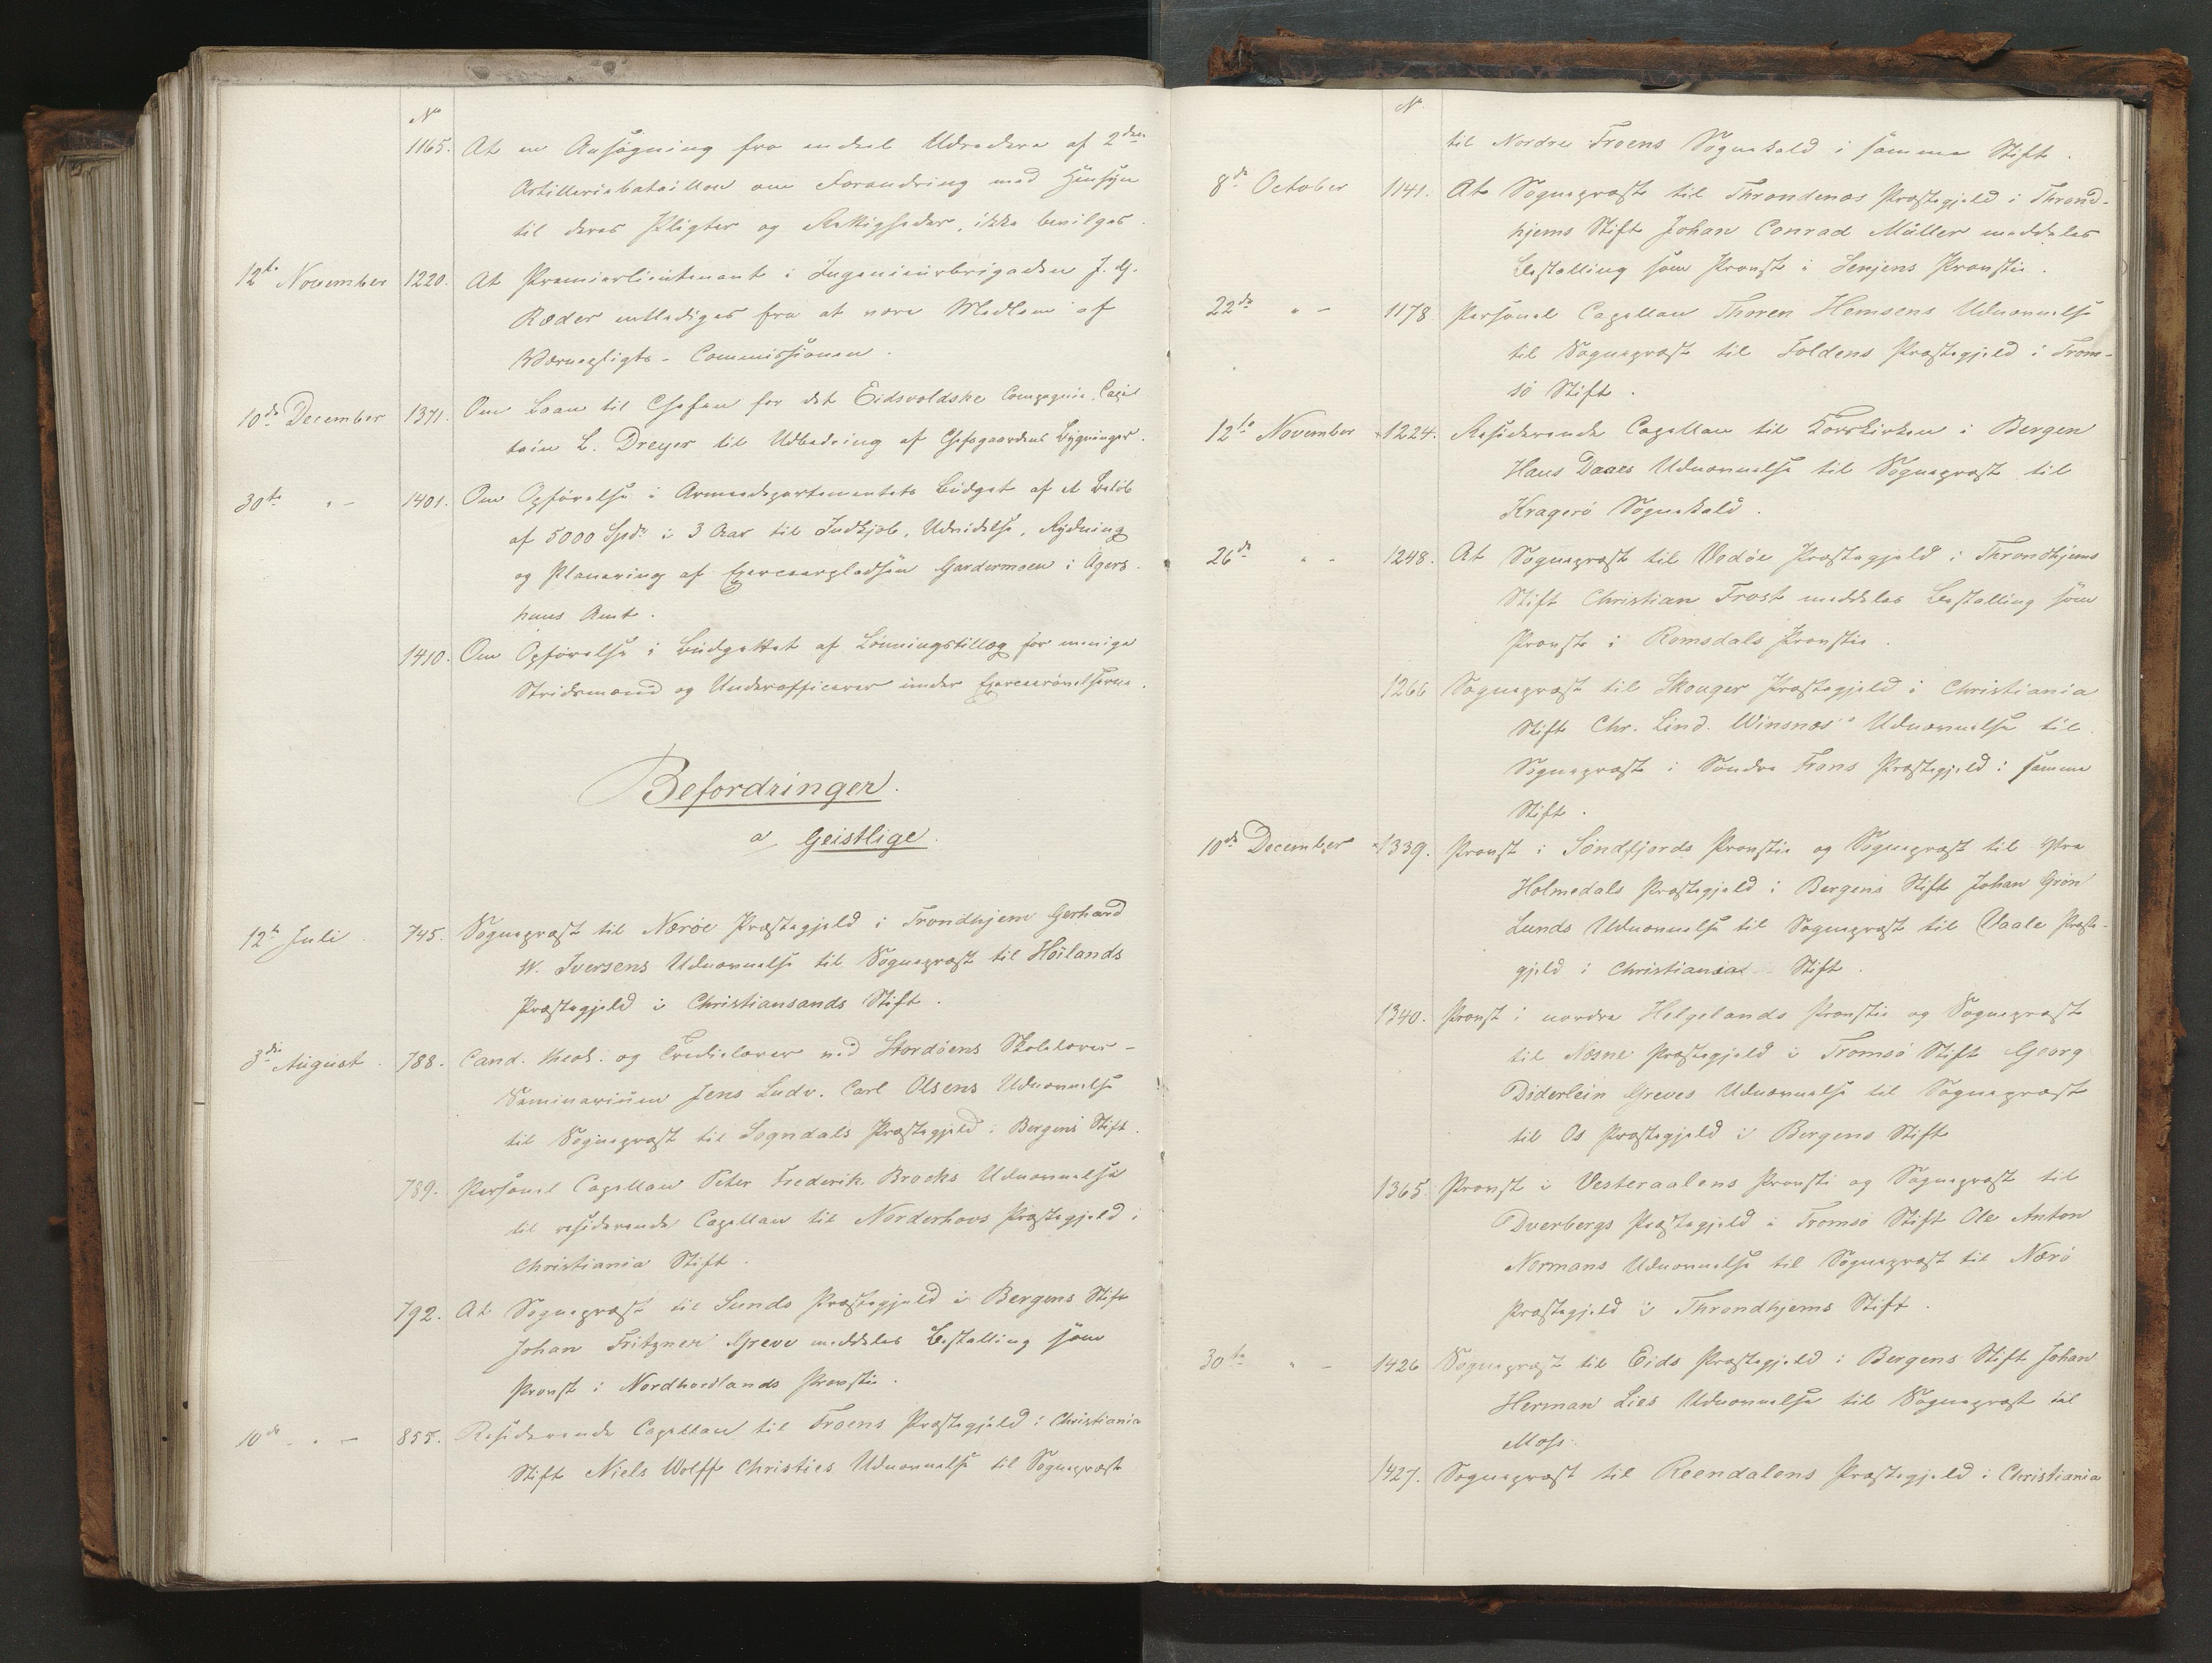 No
1165. At en Ansøgning fra endeel Udredere af 2den
Artilleriebataillon om Forandring med Hensyn
til deres Pligter og Rettigheder, ikke bevilges.
12te November 1220. At Premierlieutenant i Ingenieurbrigaden J. G.
Ræder entlediges fra at være Medlem af
Værnepligts-Commissionen.
10de December 1371. Om Laan til Chefen for det Eidsvoldske Compagnie, Capi
tain L. Dreyer til Udbedring af Chefsgaardens Bygninger.
30te " - 1401. Om Opførelse i Armeedepartementets Budget af et Beløb
af 5000 Spd. i 3 Aar til Indkjøb, Udvidelse, Rydning
og Planering af Exerceerpladsen Gardermoen i Agers-
huus Amt.
1410. Om Opførelse i Budgettet af Lønningstillæg for menige
Stridsmænd og Underofficerer under Exerceerøvelserne.
Befordringer.
a, Geistlige.
12te Juli 745. Sognepræst til Nærøe Præstegjeld i Trondhjem Gerhard
W. Iversens Udnævnelse til Sognepræst til Høilands
Præstegjeld i Christiansands Stift.
3die August. 788. Cand. theol. og Tredielærer ved Stordøens Skolelærer-
Seminarium Jens Ludv. Carl Olsens Udnævnelse
til Sognepræst til Sogndals Præstegjeld i Bergens Stift.
789. Personel Capellan Peter Frederik Brocks Udnævnelse
til residerende Capellan til Norderhovs Præstegjeld i
Christiania Stift.
792. At Sognepræst til Sunds Præstegjeld i Bergens Stift
Johan Fritzner Greve meddeles Bestalling som
Provst i Nordhordlands Provstie.
10de " - 855. Residerende Capellan til Froens Præstegjeld i Christiania
Stift Niels Wolff Christies Udnævnelse til Sognepræst
No
til Nordre Froens Sognekald i samme Stift.
8de October 1141. At Sognepræst til Throndenæs Præstegjeld i Thrond-
hjems Stift Johan Conrad Müller meddeles
Bestalling som Provst i Senjens Provstie.
22de " - 1178 Personel Capellan Thoren Hemsens Udnævnelse
til Sognepræst til Foldens Præstegjeld i Trom-
sö Stift.
12te November 1224. Residerende Capellan til Korskirken i Bergen
Hans Daaes Udnævnelse til Sognepræst til
Kragerö Sognekald.
26de " - 1248. At Sognepræst til Vedöe Præstegjeld i Throndhjems
Stift Christian Frost meddeles Bestalling som
Provst i Romsdals Provstie.
1266 Sognepræst til Skouger Præstegjeld i Christiania
Stift Chr. Lind. Winsnæs' Udnævnelse til
Sognepræst i Søndre Frons Præstegjeld i samme
Stift.
10de December 1339. Provst i Søndfjords Provstie og Sognepræst til Ytre
Holmedals Præstegjeld i Bergens Stift Johan Grøn
Lunds Udnævnelse til Sognepræst til Vaale Præste-
gjeld i Christiania Stift.
1340. Provst i nordre Helgelands Provstie og Sognepræst
til Næsne Præstegjeld i Tromsö Stift Georg
Döderlein Greves Udnævnelse til Sognepræst
til Os Præstegjeld i Bergens Stift
1365. Provst i Vesteraalens Provsti og Sognepræst til
Dverbergs Præstegjeld i Tromsö Stift Ole Anton
Normans Udnævnelse til Sognepræst til Nærö
Præstegjeld i Throndhjems Stift.
30te " - 1426 Sognepræst til Eids Præstegjeld i Bergens Stift Johan
Herman Lies Udnævnelse til Sognepræst til
Moss.
1427. Sognepræst til Reendalens Præstegjeld i Christiania